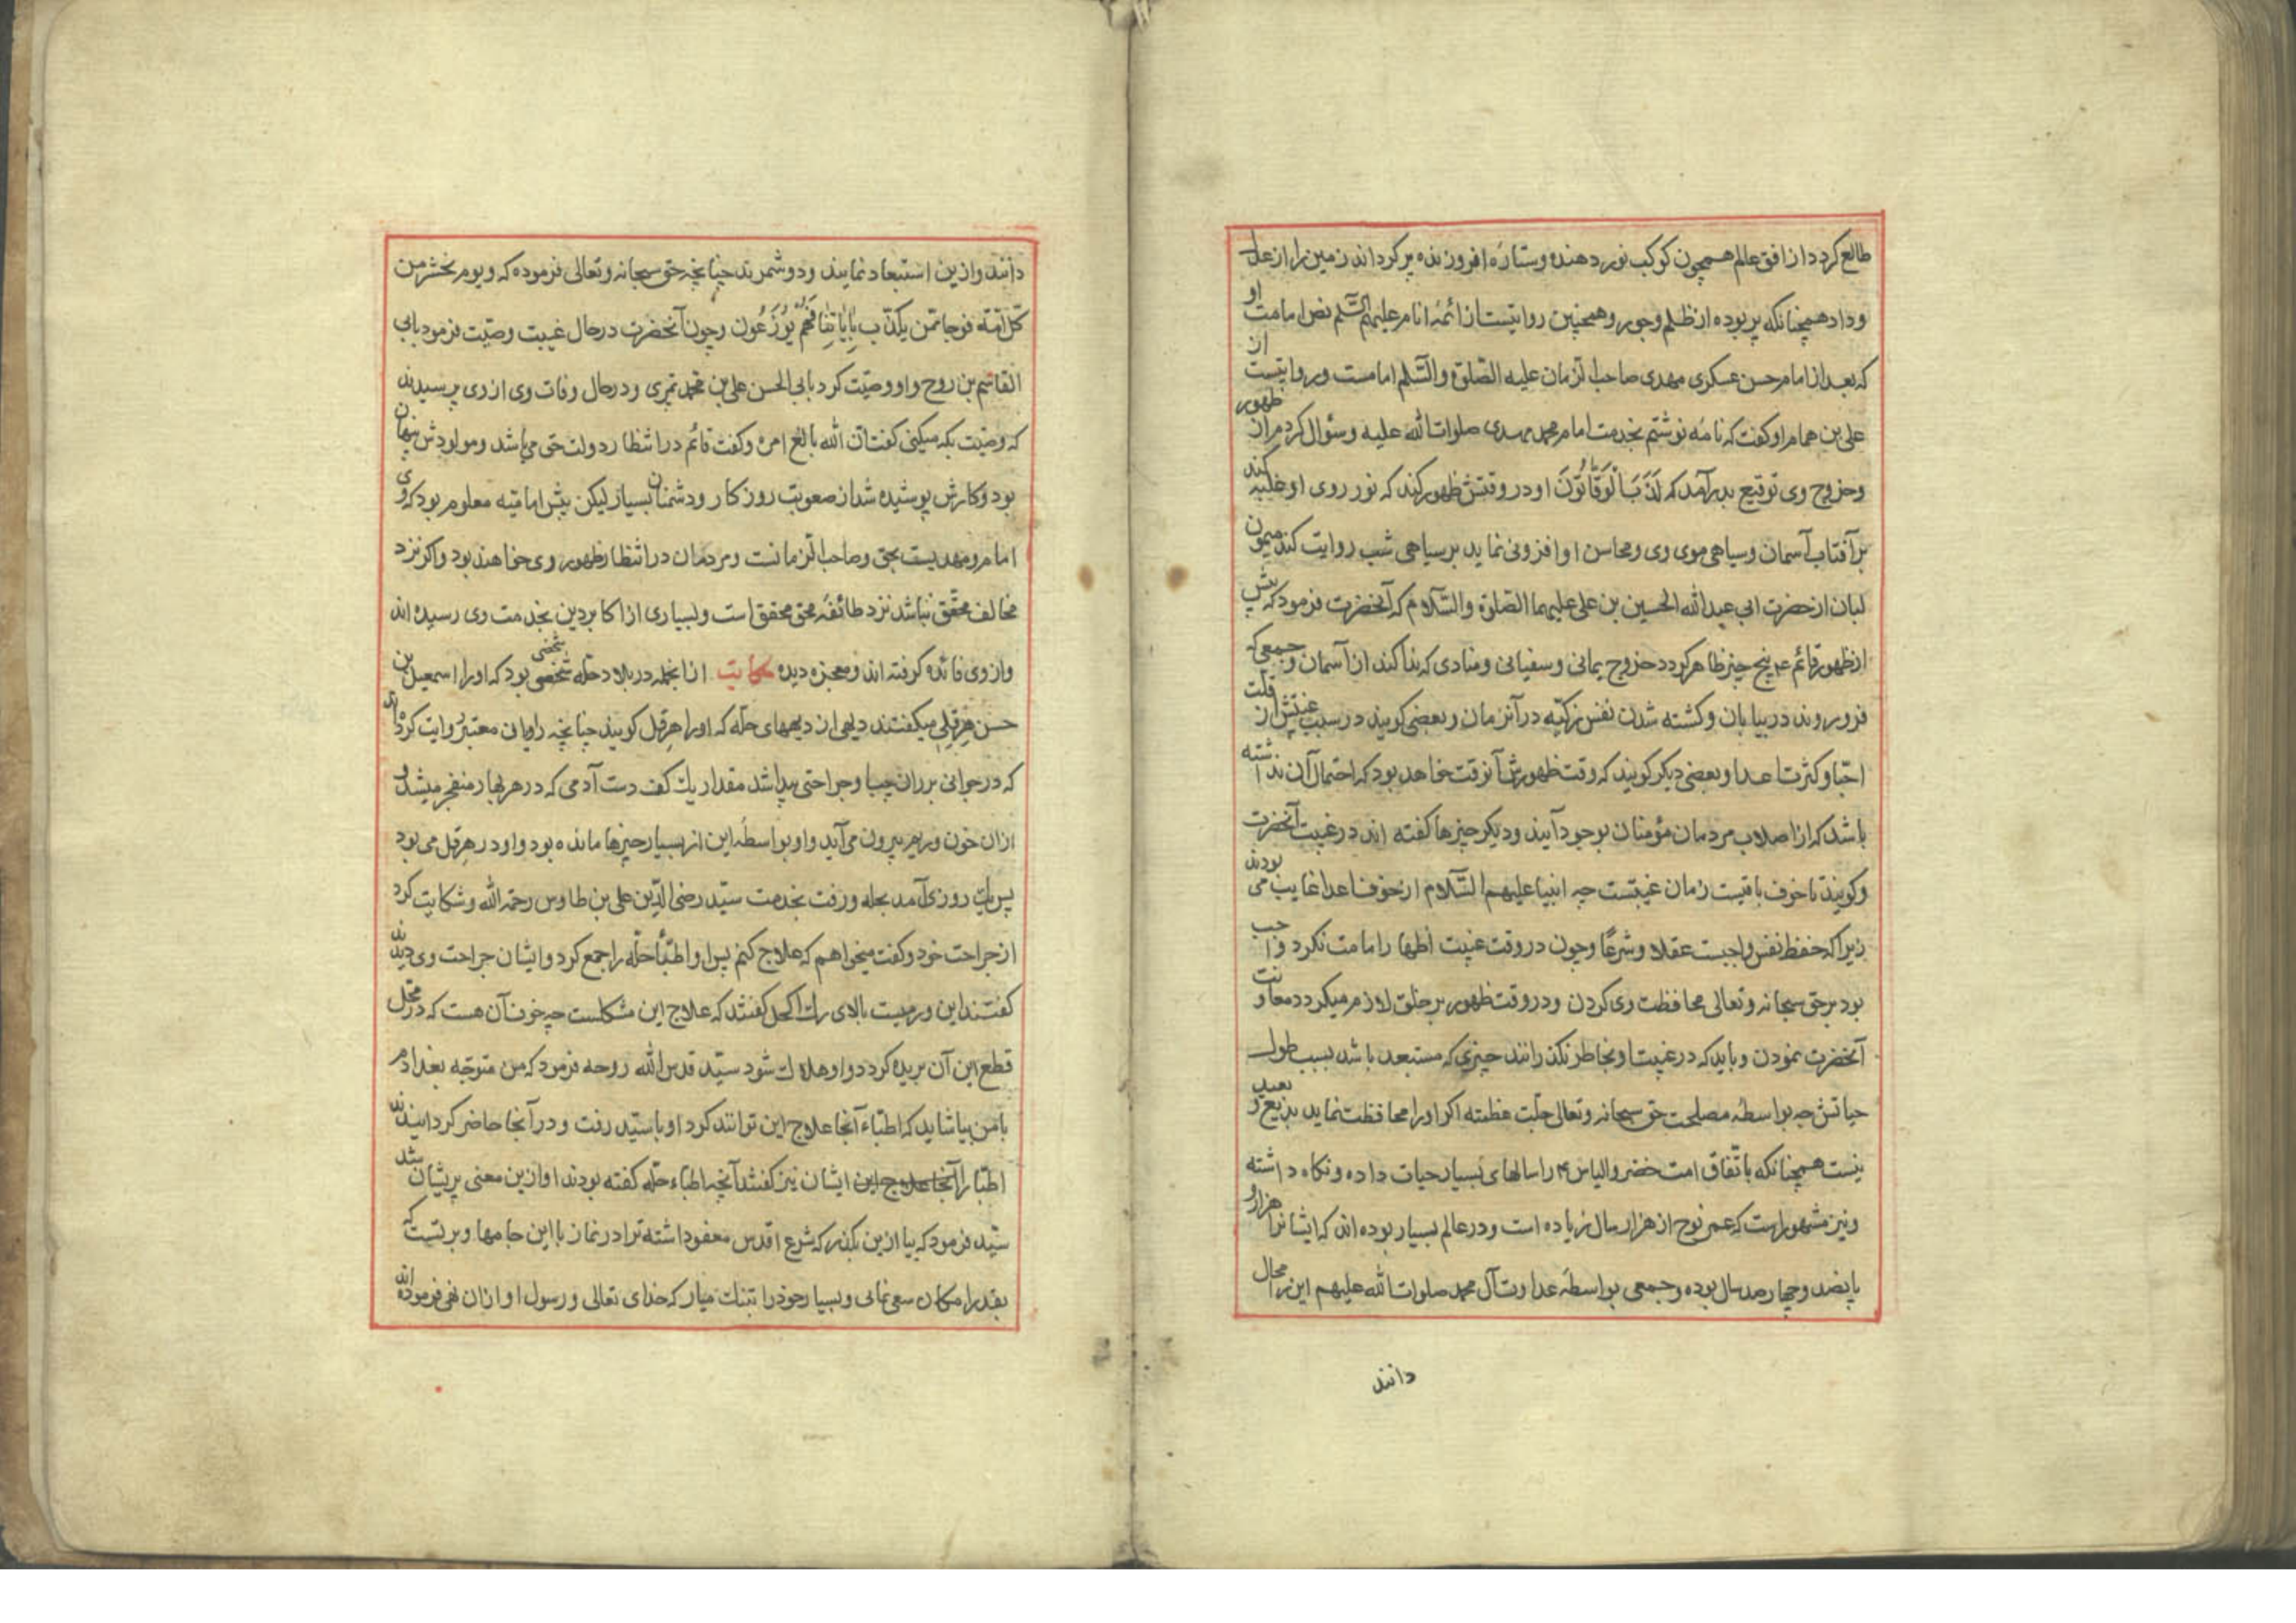 طالع کردد از افق عالم همچون کوکب نور دهنده و ستارهٔ افروزنده پر کرداند زمین را از عدل
و داد همچنانکه پر بوده از ظلم و جور و همچنین روایتست از ائمهٔ انام علیهم السّلم نص امامت او
که بعد از امام حسن عسکری مهدی صاحب الزمان علیه الصّلوة والسّلم امامست و روایتست از
علی بن همام او کفت که نامه نوشتم بخدمت امام محمد مهدی صلوات الله علیه و سؤال کردم از ظهور
و خروج وی توقیع بدر آمد که کَذَبَ الْوَقّاتُونَ او در وقتش ظهور کند که نور روی او غلبه کند
بر آفتاب آسمان و سیاهی موی وی و محاسن او افزونی نماید بر سیاهی شب روایت کند میمون
لبان از حضرت ابی عبدالله الحسین بن علی علیهما الصّلوة والسّلام که آنحضرت فرمود که پیش
از ظهور قائم ع پنج چیز ظاهر کردد خروج یمانی و سفیانی و منادی که ندا کند از آسمان و جمعی که
فرو روند در بیابان و کشته شدن نفس زکیّه در آنزمان و بعضی کویند در سبب غیبتش از قلت
احبّا و کثرت اعدا و بعضی دیکر کویند که وقت ظهورش آنوقت خواهد بود که احتمال آن نداشته
باشد که از اصلاب مردمان مؤمنان بوجود آیند و دیکر چیزها کفته اند در غیبت آنحضرت
و کویند تا خوف باقیست زمان غیبتست چه انبیا علیهم السّلام از خوف اعدا غایب می بودند
زیرا که حفظ نفس واجبست عقلا و شرعًا و چون در وقت غیبت اظهار امامت نکرد واجب
بود بر حق سبحانه و تعالی محافظت وی کردن و در وقت ظهور بر خلق لازم میکردد معاونت
آنحضرت نمودن و باید که در غیبت او بخاطر نکذرانند چیزی که مستبعد باشد بسبب طول
حیاتش چه بواسطهٔ مصلحت حق سبحانه و تعالی جلّت عظمته اکر او را محافظت نماید بدیع و بعید
نیست همچنانکه باتّفاق امت خضر و الیاس ع را سالهای بسیار حیات داده و نکاه داشته
و نیز مشهور است که عمر نوح از هزار سال زیاده است و در عالم بسیار بوده اند که ایشانرا هزار و
پانصد و چهار صد سال بوده و جمعی بواسطهٔ عداوت آل محمد صلوات الله علیهم این را محال
دانند
دانند و ازین استبعاد نمایند و دو شمرند چنانچه حق سبحانه و تعالی فرموده که و یوم نحشر من
کلّ امّة فوجا ممّن یکذّب بِاٰیاتِنا فَهُم یُوزَعُون و چون آنحضرت در حال غیبت وصیّت فرمود بابی
القاسم بن روح و او وصیّت کرد بابی الحسن علی بن محمد تمری و در حال وفات وی از وی پرسیدند
که وصیّت بکه میکنی کفت انّ الله بالغ امره و کفت قائم در انتظار دولت حق می باشد و مولودش پنهان
بود و کارش پوشیده شد از صعوبت روزکار و دشمنان بسیار لیکن پیش امامیّه معلوم بود که وی
امام و مهدیست بحق و صاحب الزمانست و مردمان در انتظار ظهور وی خواهند بود و اکر نزد
مخالف محقّق نباشد نزد طائفهٔ محق محقق است و بسیاری از اکابر دین بخدمت وی رسیده اند
و از وی فائده کرفته اند و معجزه دیده حکایت ازانجمله در بلاد حلّه شخصی بود که او را اسمعیل بن
حسن هِرقلی میکفتند دیهی از دیههای حلّه که او را هرقل کویند چنانچه راویان معتبر روایت کرده اند
که در جوانی بر ران چپ او جراحتی پیدا شد مقدار یک کف دست آدمی که در هر بهار منفجر میشد و
ازان خون و ریم بیرون می آید و او بواسطهٔ این از بسیار چیزها مانده بود و او در هرقل می بود
پس یک روزی آمد بحله و رفت بخدمت سیّد رضی الدّین علی بن طاوس رحمة الله و شکایت کرد
از جراحت خود و کفت میخواهم که علاج کنم پس او اطبّاء حلّه را جمع کرد و ایشان جراحت وی دیدند
کفتند این ورمیست بالای رک اکحل کفتند که علاج این مشکلست چه خوف آن هست که در محل
قطع این آن بریده کردد و او هلاک شود سیّد قدس الله روحه فرمود که من متوجّه بغدادم
با من بیا شاید که اطبّاء آنجا علاج این توانند کرد او با سیّد رفت و در آنجا حاضر کردانیدند
اطبّا را آنجا علاج این ایشان نیز کفتند آنچه اطباء حلّه کفته بودند او ازین معنی پریشان شد
سیّد فرمود که بیا ازین بکذر که شرع اقدس معفو داشته ترا در نماز با این جامها و بر تست که
بقدر امکان سعی نمائی و بسیار خود را میار که خدای تعالی و رسول او ازان نهی فرموده اند